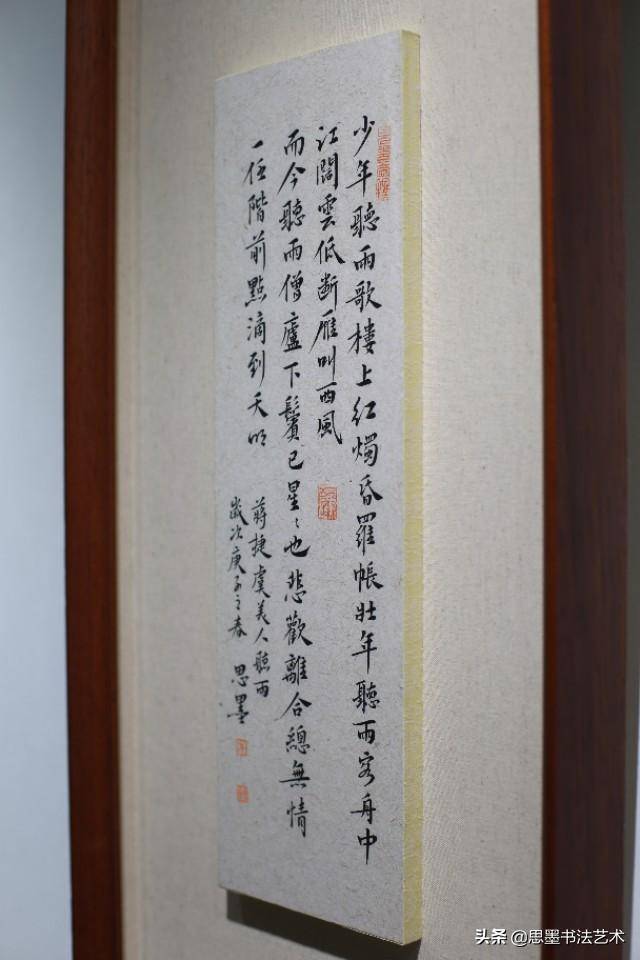 少年聽雨歌樓上红燭昏羅帳壯年聽雨客舟中
江闊雲低斷雁叫西風
而今聽雨僧廬下鬢已星〻也悲歡離合總無情
一任階前點滴到天明
蔣捷虞美人聽雨
歲次庚子之春 思墨
头条 @思墨书法艺术